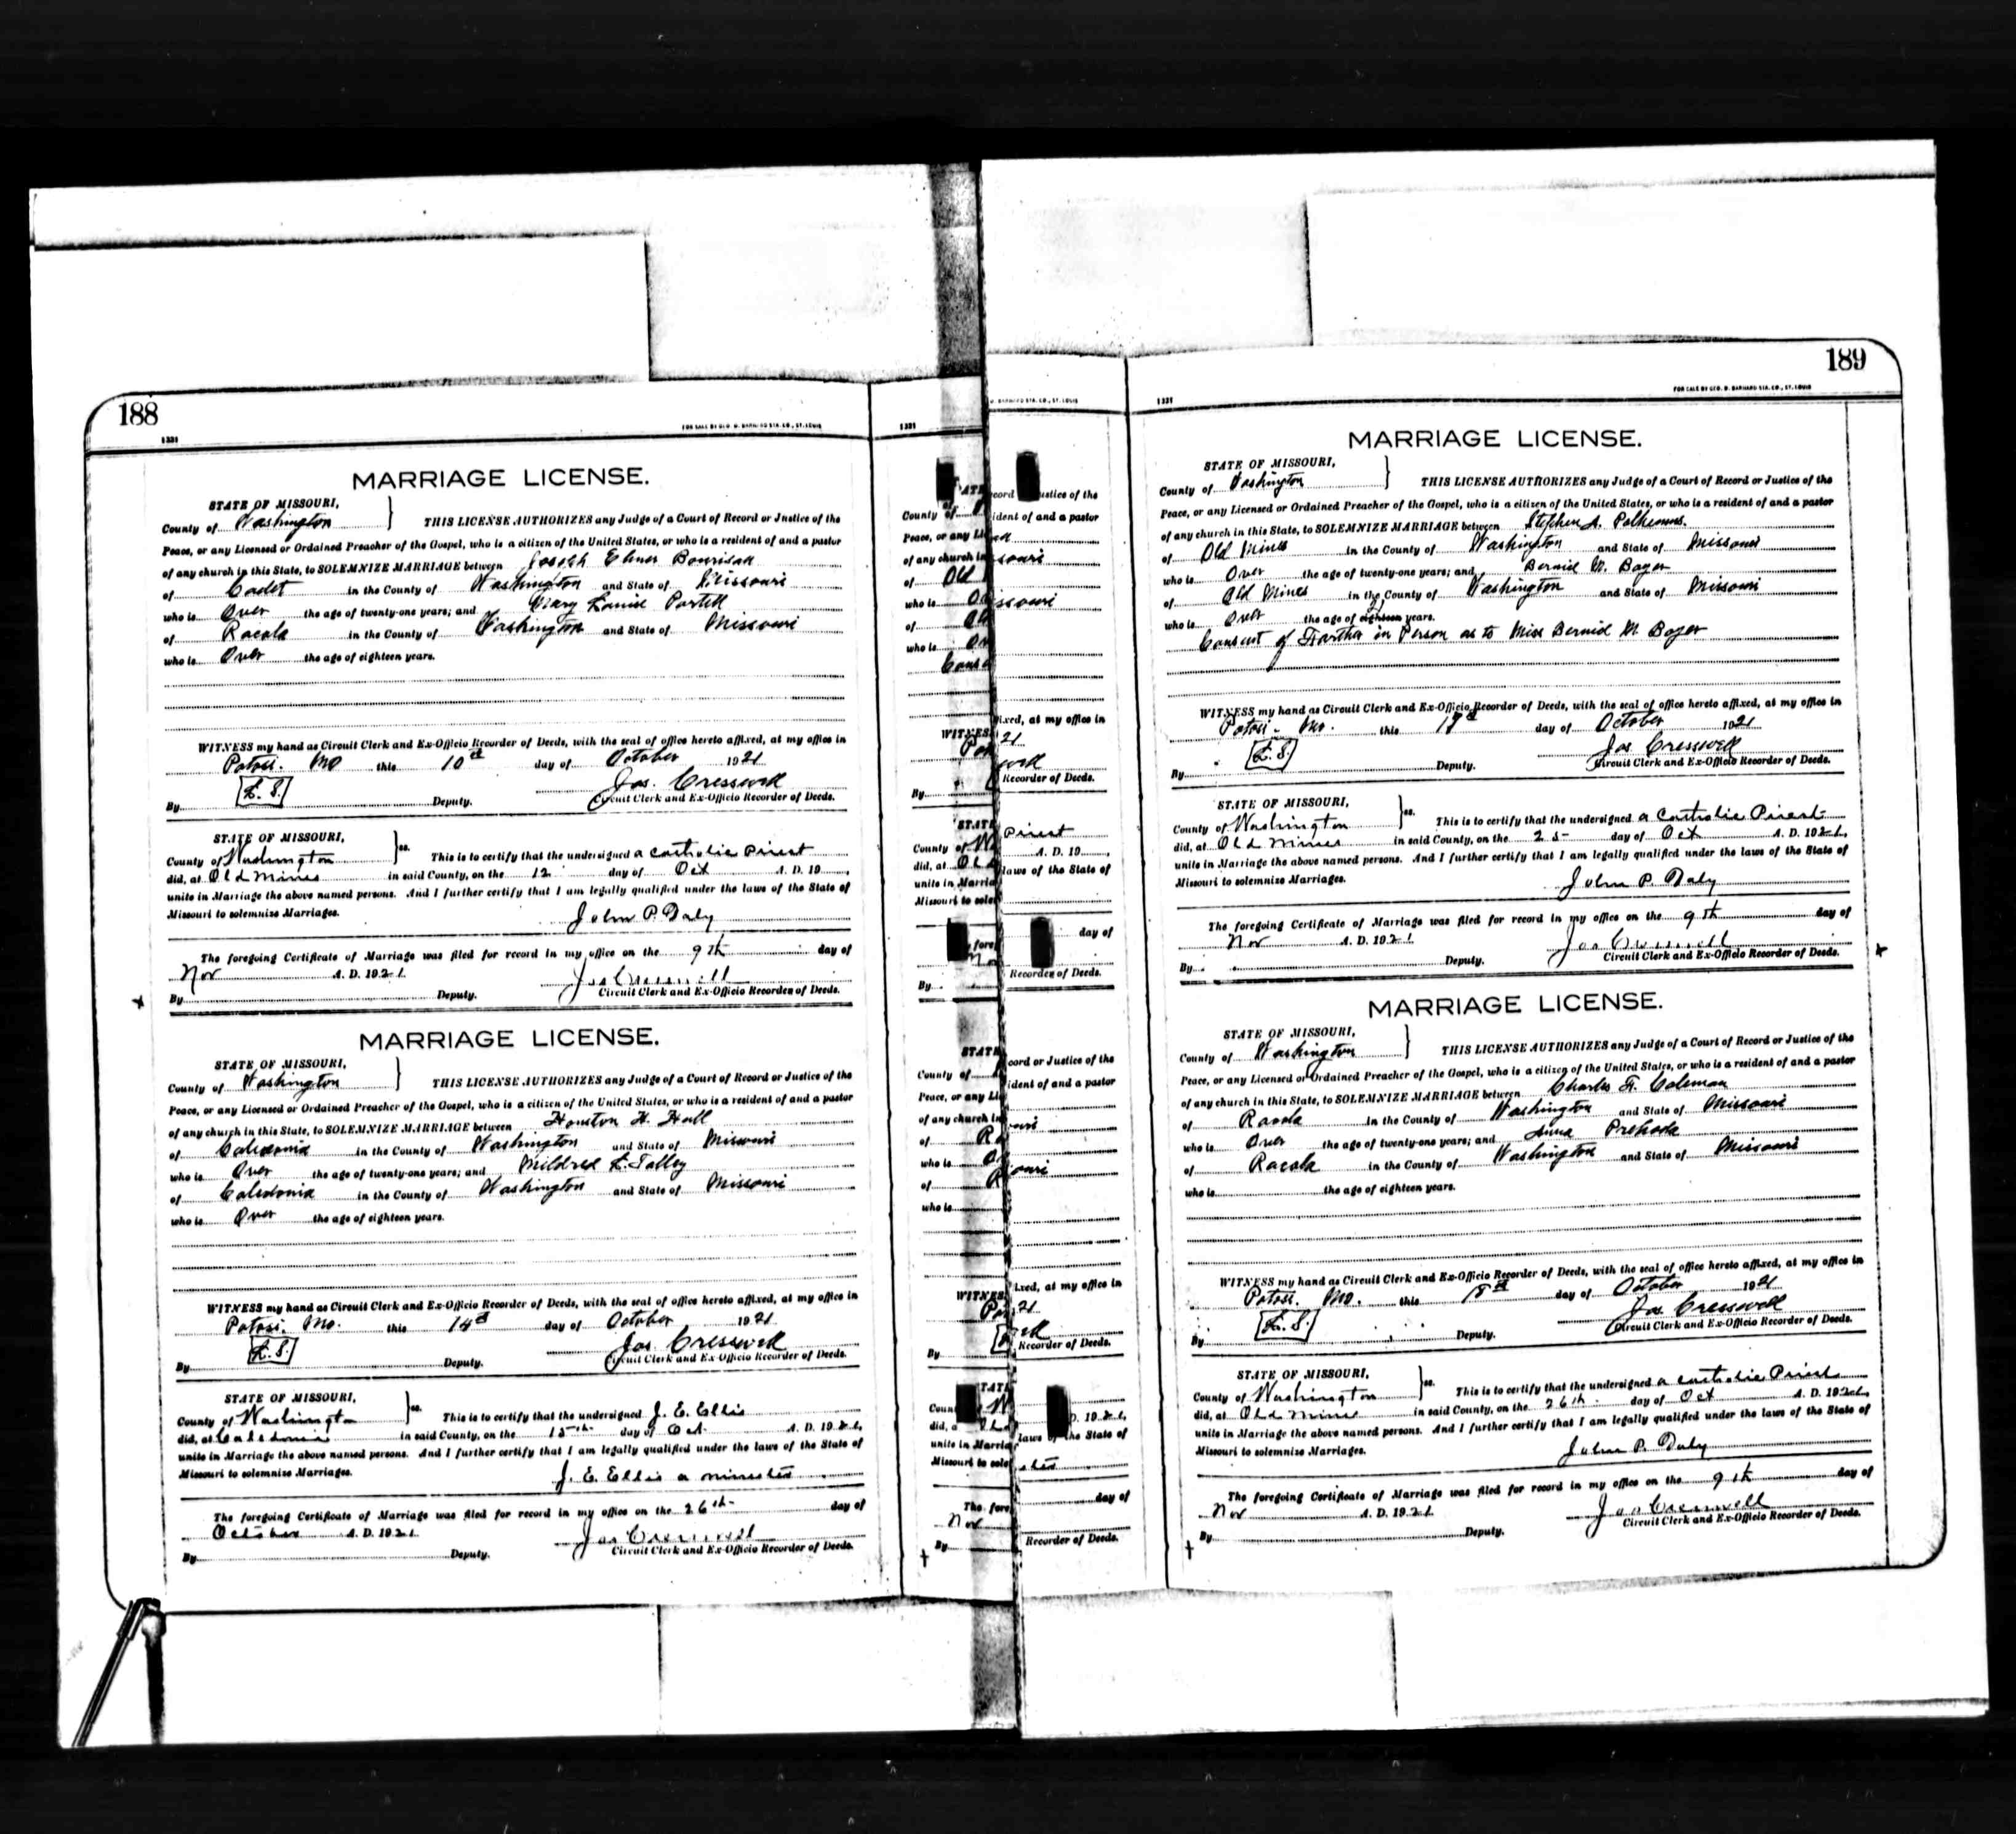 188
1331
FOR SALE BY GEO. D. BARNARD STA. CO., ST. LOUIS
MARRIAGE LICENSE.
STATE OF MISSOURI,
County of Washington } THIS LICENSE AUTHORIZES any Judge of a Court of Record or Justice of the
Peace, or any Licensed or Ordained Preacher of the Gospel, who is a citizen of the United States, or who is a resident of and a pastor
of any church in this State, to SOLEMNIZE MARRIAGE between Joseph Elmer Bourisaw
of Cadet in the County of Washington and State of Missouri
who is Over the age of twenty-one years; and Mary Louise Portell
of Racola in the County of Washington and State of Missouri
who is Over the age of eighteen years.
WITNESS my hand as Circuit Clerk and Ex-Officio Recorder of Deeds, with the seal of office hereto affixed, at my office in
Potosi. Mo this 10th day of October 1921
L.S. Jas. Cresswell
By Deputy. Circuit Clerk and Ex-Officio Recorder of Deeds.
STATE OF MISSOURI,
County of Washington } ss. This is to certify that the undersigned a catholic Priest
did, at Old Mines in said County, on the 12 day of Oct A. D. 19
unite in Marriage the above named persons. And I further certify that I am legally qualified under the laws of the State of
Missouri to solemnize Marriages.
John P. Daly
The foregoing Certificate of Marriage was filed for record in my office on the 9th day of
Nov A. D. 1921
Jas Cresswell
By Deputy. Circuit Clerk and Ex-Officio Recorder of Deeds.
MARRIAGE LICENSE.
STATE OF MISSOURI,
County of Washington } THIS LICENSE AUTHORIZES any Judge of a Court of Record or Justice of the
Peace, or any Licensed or Ordained Preacher of the Gospel, who is a citizen of the United States, or who is a resident of and a pastor
of any church in this State, to SOLEMNIZE MARRIAGE between Houston H. Hall
of Caledonia in the County of Washington and State of Missouri
who is Over the age of twenty-one years; and Mildred L. Talley
of Caledonia in the County of Washington and State of Missouri
who is Over the age of eighteen years.
WITNESS my hand as Circuit Clerk and Ex-Officio Recorder of Deeds, with the seal of office hereto affixed, at my office in
Potosi. Mo. this 14th day of October 1921
L.S. Jas. Cresswell
By Deputy. Circuit Clerk and Ex-Officio Recorder of Deeds.
STATE OF MISSOURI,
County of Washington } ss. This is to certify that the undersigned J. E. Ellis
did, at Caledonia in said County, on the 15th day of Oct. A. D. 1921,
unite in Marriage the above named persons. And I further certify that I am legally qualified under the laws of the State of
Missouri to solemnize Marriages.
J. E. Ellis a minister
The foregoing Certificate of Marriage was filed for record in my office on the 26th day of
October A. D. 1921
Jas Cresswell
By Deputy. Circuit Clerk and Ex-Officio Recorder of Deeds.
189
1331
FOR SALE BY GEO. D. BARNARD STA. CO., ST. LOUIS
MARRIAGE LICENSE.
STATE OF MISSOURI,
County of Washington } THIS LICENSE AUTHORIZES any Judge of a Court of Record or Justice of the
Peace, or any Licensed or Ordained Preacher of the Gospel, who is a citizen of the United States, or who is a resident of and a pastor
of any church in this State, to SOLEMNIZE MARRIAGE between Stephen A. Polhemus.
of Old Mines in the County of Washington and State of Missouri
who is Over the age of twenty-one years; and Bernid M. Boyer
of Old Mines in the County of Washington and State of Missouri
who is Over the age of eighteen years.
Consent of Farther in Person as to Miss Bernid M. Boyer
WITNESS my hand as Circuit Clerk and Ex-Officio Recorder of Deeds, with the seal of office hereto affixed, at my office in
Potosi. Mo. this day of October 1921
L.S. Jas Cresswell
By Deputy. Circuit Clerk and Ex-Officio Recorder of Deeds.
STATE OF MISSOURI,
County of Washington } ss. This is to certify that the undersigned a Catholic Priest
did, at Old Mines in said County, on the 25 day of Oct A. D. 1921,
unite in Marriage the above named persons. And I further certify that I am legally qualified under the laws of the State of
Missouri to solemnize Marriages.
John P. Daly
The foregoing Certificate of Marriage was filed for record in my office on the 9th day of
Nov A. D. 1921
Jas Cresswell
By Deputy. Circuit Clerk and Ex-Officio Recorder of Deeds.
MARRIAGE LICENSE.
STATE OF MISSOURI,
County of Washington } THIS LICENSE AUTHORIZES any Judge of a Court of Record or Justice of the
Peace, or any Licensed or Ordained Preacher of the Gospel, who is a citizen of the United States, or who is a resident of and a pastor
of any church in this State, to SOLEMNIZE MARRIAGE between Charles F. Coleman
of Racola in the County of Washington and State of Missouri
who is Over the age of twenty-one years; and Anna Prehoda
of Racola in the County of Washington and State of Missouri
who is the age of eighteen years.
WITNESS my hand as Circuit Clerk and Ex-Officio Recorder of Deeds, with the seal of office hereto affixed, at my office in
Potosi. Mo. this 18th day of October 1921
L.S. Jas Cresswell
By Deputy. Circuit Clerk and Ex-Officio Recorder of Deeds.
STATE OF MISSOURI,
County of Washington } ss. This is to certify that the undersigned a catholic Priest
did, at Old Mines in said County, on the 26th day of Oct A. D. 1921,
unite in Marriage the above named persons. And I further certify that I am legally qualified under the laws of the State of
Missouri to solemnize Marriages.
John P. Daly
The foregoing Certificate of Marriage was filed for record in my office on the 9th day of
Nov A. D. 1921
Jas Cresswell
By Deputy. Circuit Clerk and Ex-Officio Recorder of Deeds.